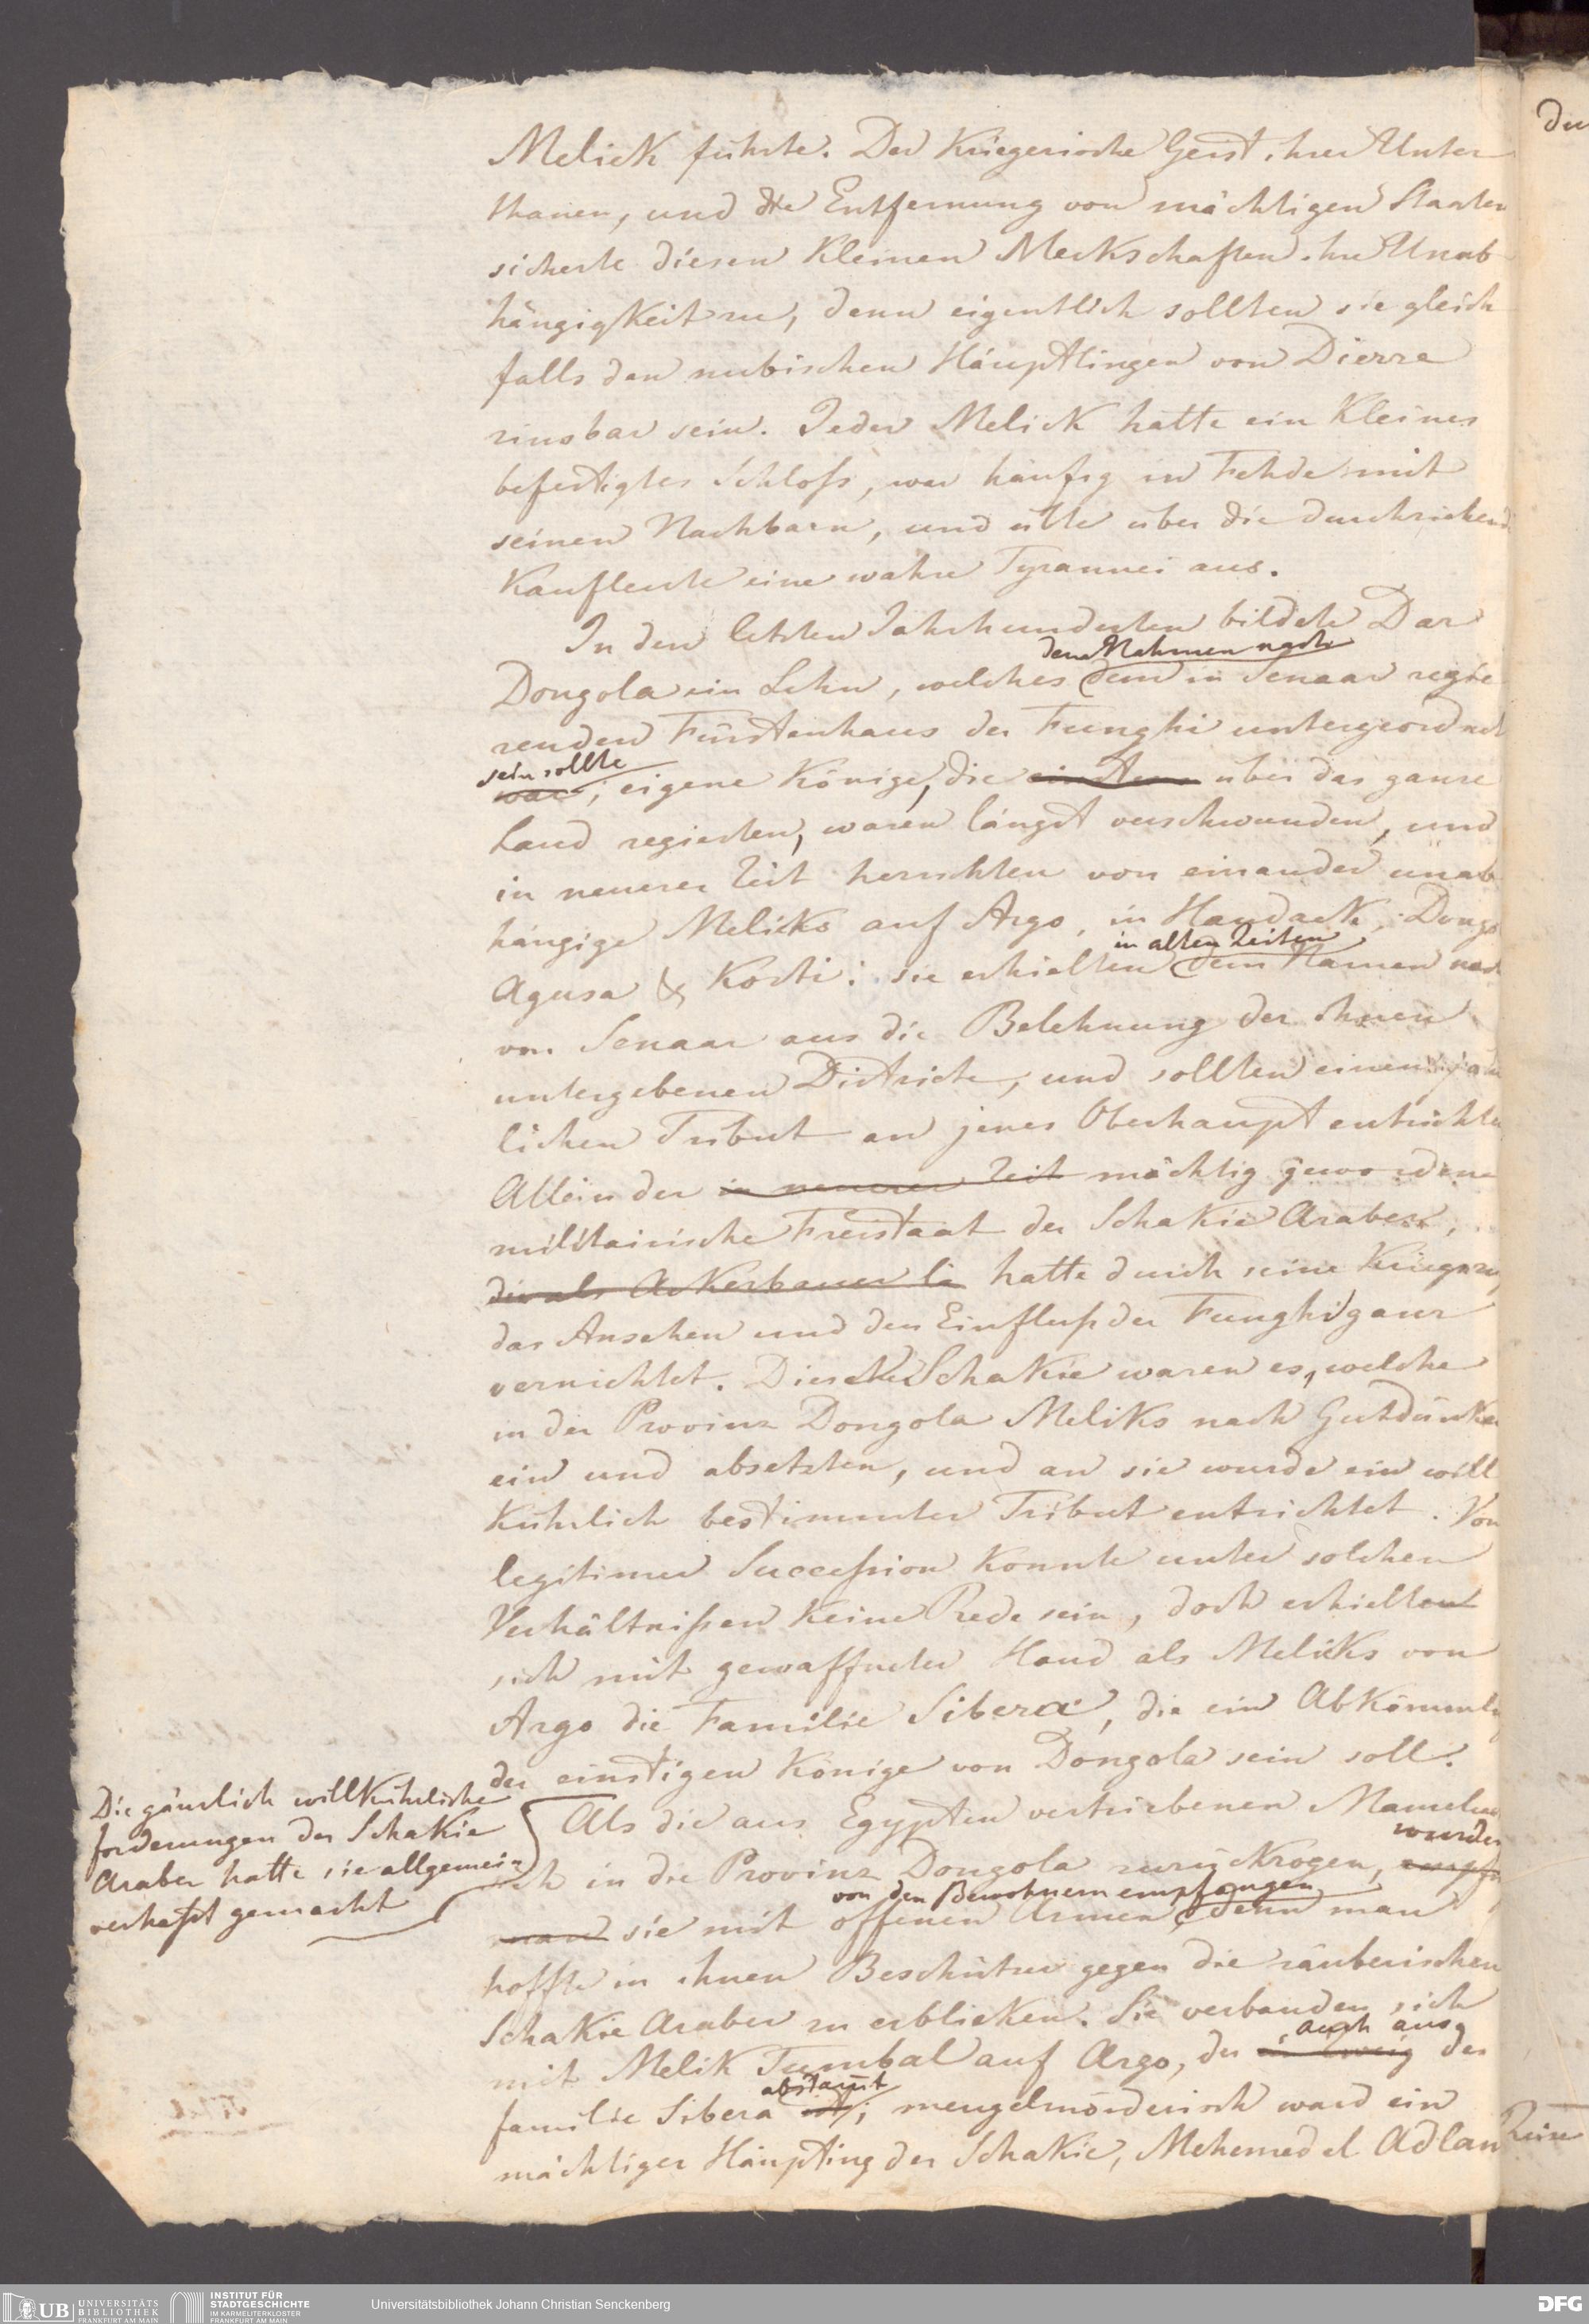 Melick führte. Der Kriegerische Geist ihrer Unter
thanen, und die Entfernung von mächtigen Staaten
sicherte diesen Kleinen Meckschaften ihre Unab
hängigkeit zu, denn eigentlich sollten sie gleich
falls den nubischen Häuptlingen von Dierre
zinsbar sein. Jeder Melick hatte ein Kleines
befestigtes Schloss, war häufig in Fehde mit
seinen Nachbarn, und übte über die durchziehend
Kaufleute eine wahre Tyrannei aus.
In den letzten Jahrhunderten bildete Dar
dem Nahmen nach
Dongola ein Lehn, welches dem in Senaar regie
renden Fürstenhaus der Funghi untergeordnet
sein sollte
war; eigene Könige, die einstens über das ganze
Land regierten, waren längst verschwunden, und
in neuerer Zeit herrschten von einander unab
hängige Melicks auf Argo, in Handack, Dongo
in alten Zeiten
Agusa & Korti; sie erhielten dem Namen nach
von Senaar aus die Belehnung der ihnen
untergebenen Districte, und sollten einen jähr
lichen Tribut an jenes Oberhaupt entrichten
Allein der in neuerer Zeit mächtig gewordene
militairische Freistaat der Schakie Araber,
die als Ackerbauer le hatte durch seine Kriegszug
das Ansehen und den Einfluß der Funghi ganz
vernichtet. Diese Schakie waren es, welche
in der Provinz Dongola Meliks nach Gutdünken
ein und absetzten, und an sie wurde ein will
Kührlich bestimmter Tribut entrichtet. Von
legitimer Succeßion Konnte unter solchen
Verhältnißen Keine Rede sein, doch erhielten
sich mit gewaffneter Hand als Melicks von
Argo die Familie Sibera, die ein Abkömmling
der einstigen Könige von Dongola sein soll.
Die gänzlich willkührliche
forderungen der Schakie
Araber hatte sie allgemein
verhaßt gemacht
Als die aus Egypten vertriebenen Mameluc
wurden
sich in die Provinz Dongola zurückzogen, empfi
von den Bewohnern empfangen
man sie mit offenen Armen, denn man
hoffte in ihnen Beschützer gegen die räuberischen
Schakie Araber zu erblicken. Sie verbanden sich
auch aus
mit Melik Tumbal auf Argo, der ein Zweig der
abstamt
familie Sibera ist; meugelmörderisch ward ein
mächtiger Häupting der Schakie, Mehemed el Adlan
UB UNIVERSITÄTS
BIBLIOTHEK
FRANKFURT AM MAIN
INSTITUT FÜR
STADTGESCHICHTE
IM KARMELITERKLOSTER
FRANKFURT AM MAIN
Universitätsbibliothek Johann Christian Senckenberg
DFG